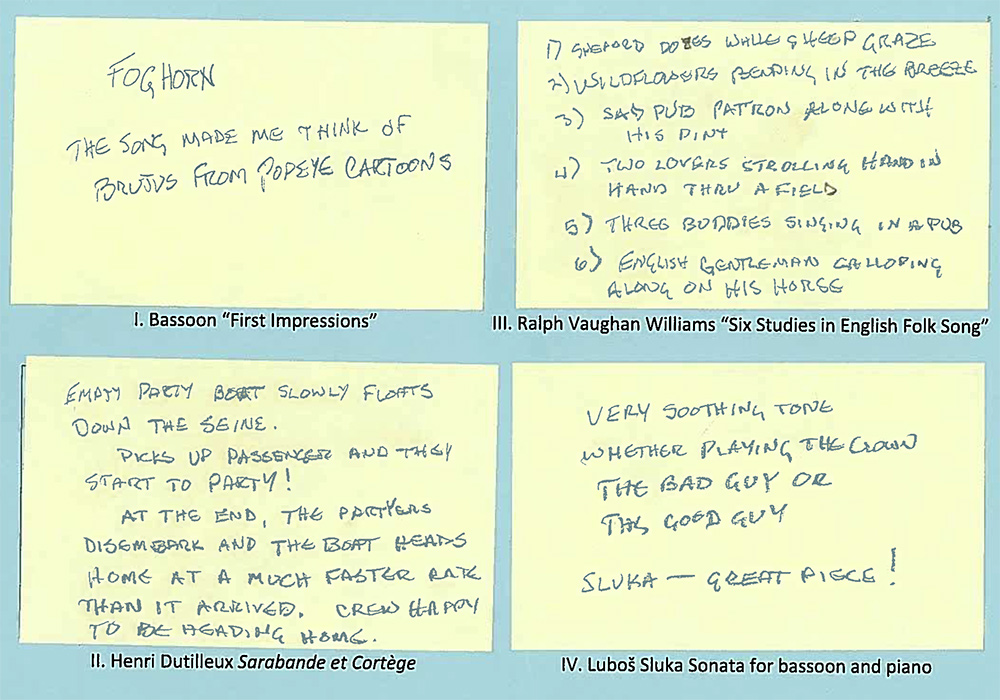 FOGHORN
THE SONG MADE ME THINK OF
BRUTUS FROM POPEYE CARTOONS
I. Bassoon “First Impressions”
1) SHEPORD DOZES WHILE SHEEP GRAZE
2) WILDFLOWERS BENDING IN THE BREEZE
3) SAD PUB PATRON ALONG WITH
HIS PINT
4) TWO LOVERS STROLLING HAND IN
HAND THRU A FIELD
5) THREE BUDDIES SINGING IN A PUB
6) ENGLISH GENTLEMAN GALLOPING
ALONG ON HIS HORSE
III. Ralph Vaughan Williams “Six Studies in English Folk Song”
EMPTY PARTY BOAT SLOWLY FLOATS
DOWN THE SEINE.
PICKS UP PASSENGER AND THEY
START TO PARTY!
AT THE END, THE PARTYERS
DISEMBARK AND THE BOAT HEADS
HOME AT A MUCH FASTER RATE
THAN IT ARRIVED. CREW HAPPY
TO BE HEADING HOME.
II. Henri Dutilleux Sarabande et Cortège
VERY SOOTHING TONE
WHETHER PLAYING THE CLOWN
THE BAD GUY OR
THE GOOD GUY
SLUKA — GREAT PIECE!
IV. Luboš Sluka Sonata for bassoon and piano